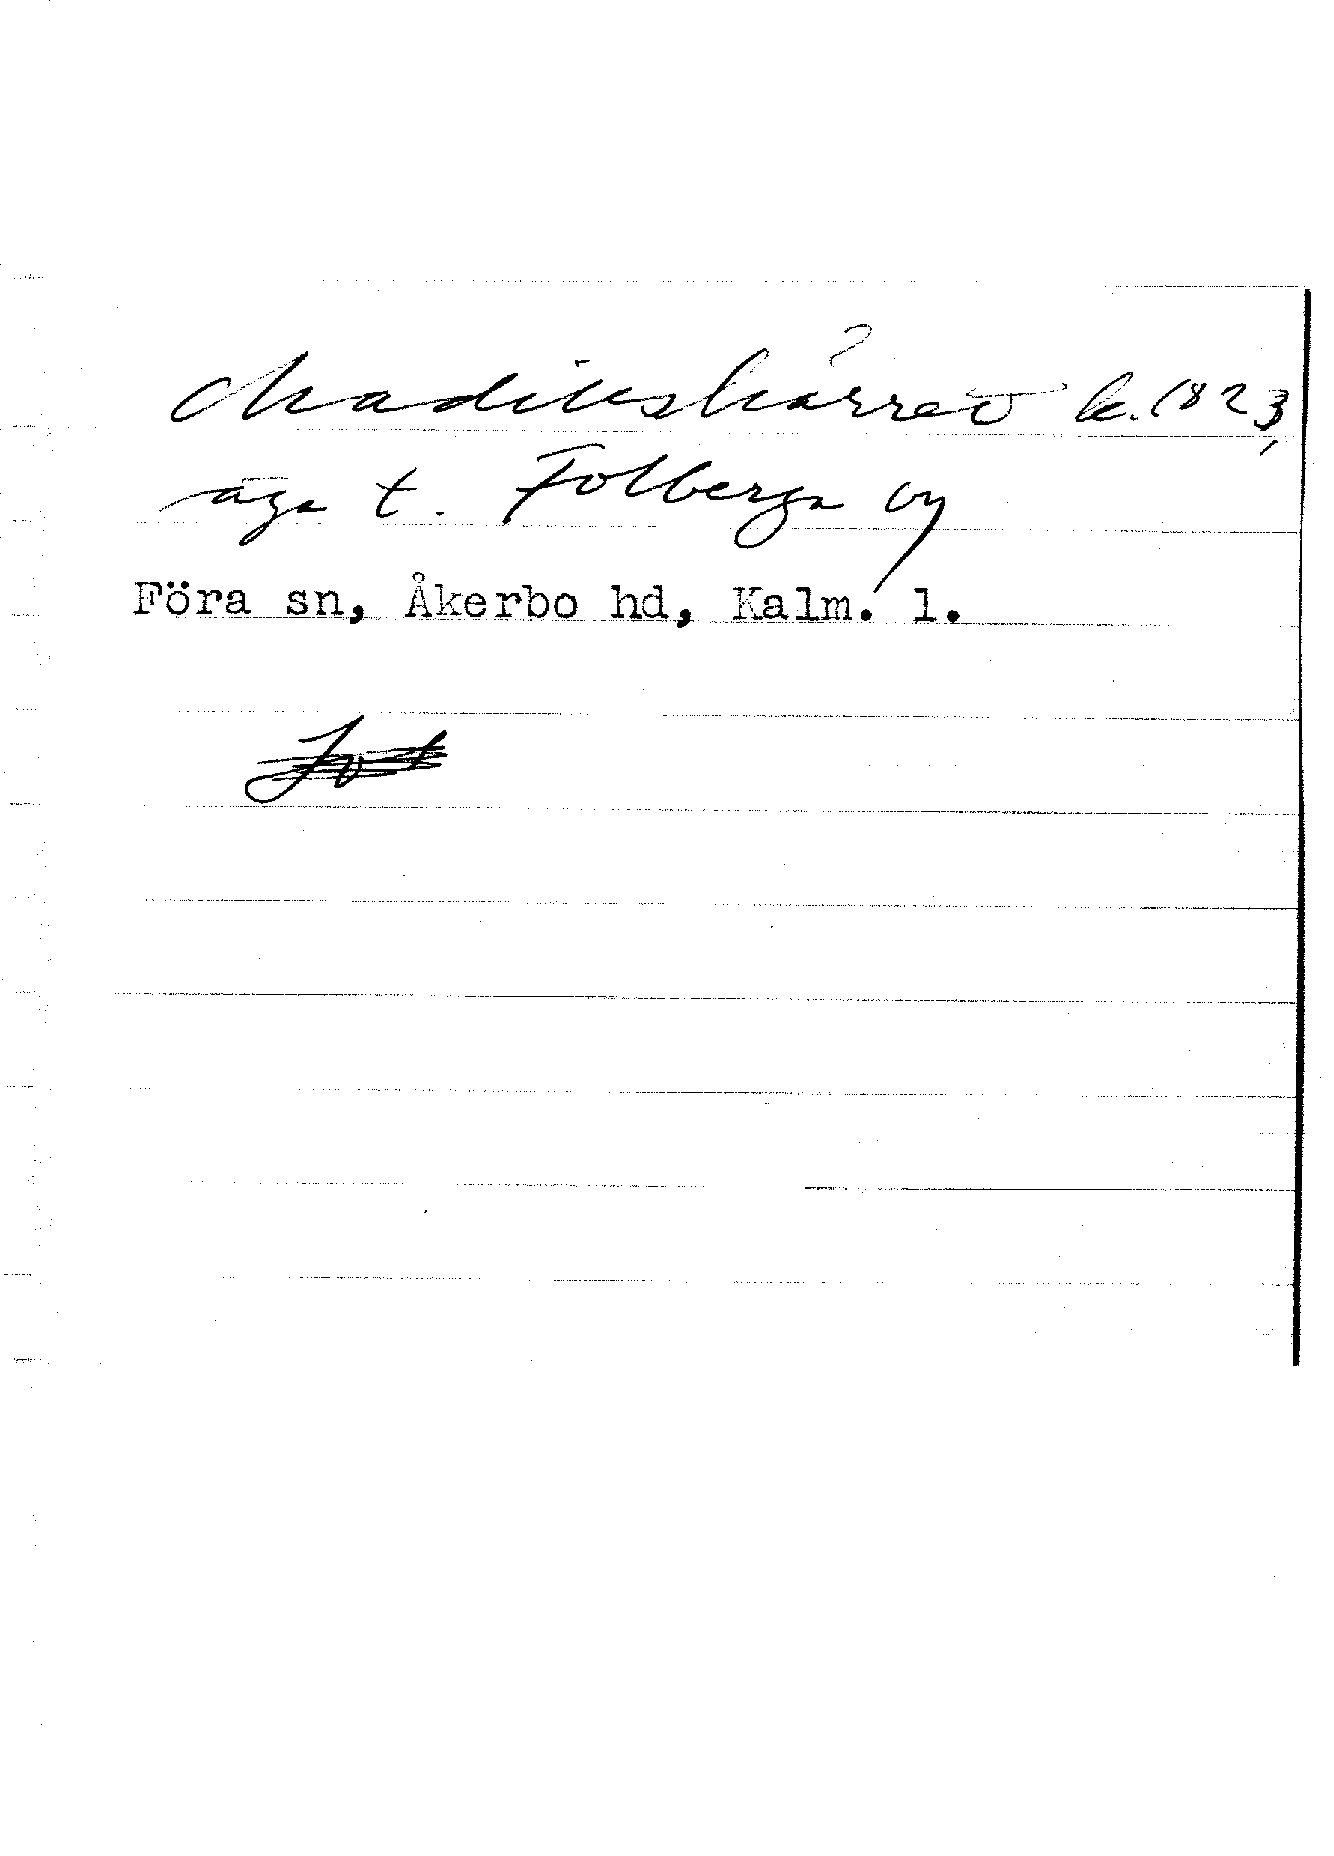 Madikskärret k. 1823,
äga t. Folberga by
Föra sn, Åkerbo hd, Kalm. l.